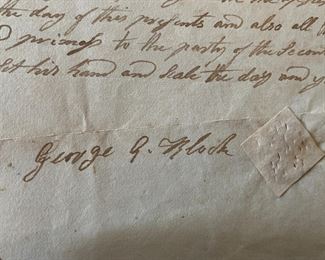 the day of this presents and also all th
premises to the party of the Second
Set his hand and Seale the day and y
George G. Klock